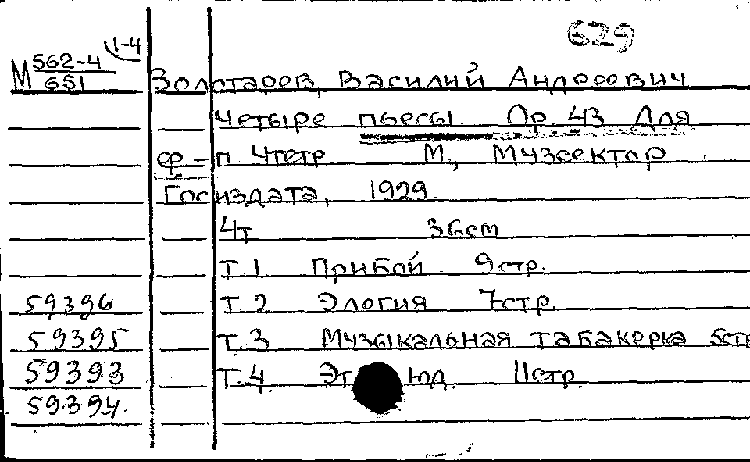 629
М 562-4/651 1-4
Золотарев, Василий Андреевич
Четыре пьесы Ор. 43 Для
ф-п. 4тетр М., Музсектор
Госиздата, 1929.
4т 36см
Т.1 Прибой 9стр.
59396 Т.2 Элегия 7стр.
59395 Т.3 Музыкальная табакерка 5стр
59393 Т.4 Эт юд 11стр
59394.